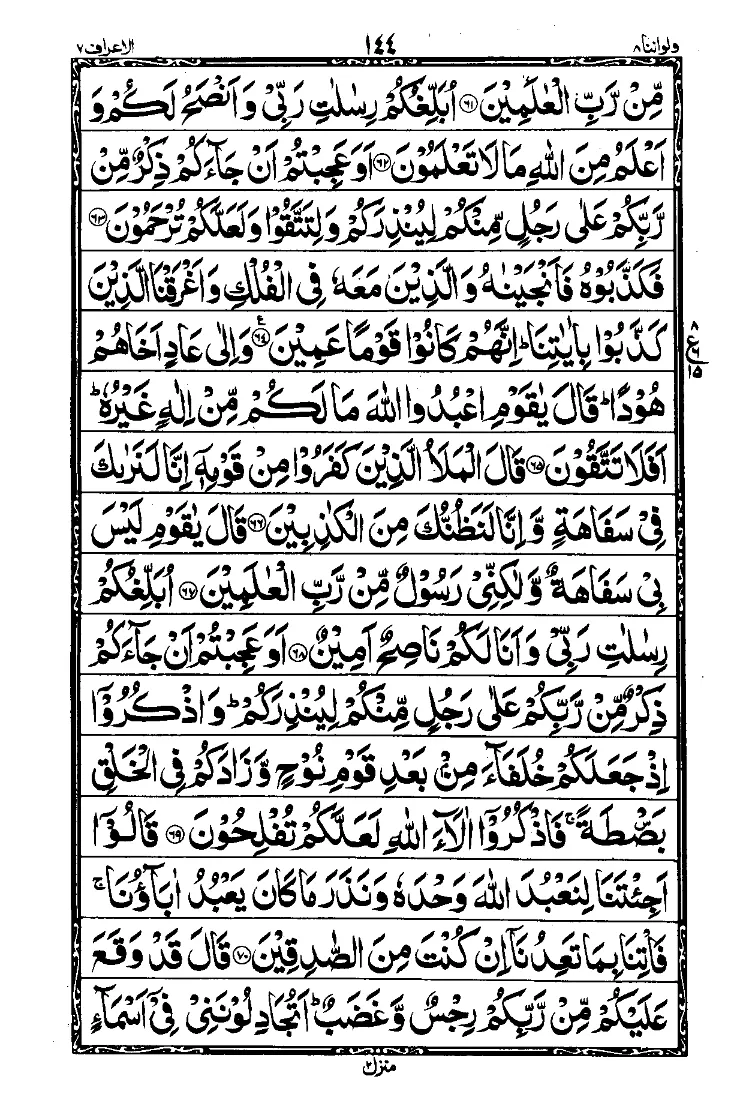 ولواننا٨ ١٤٤ الاعراف٧
مِّنْ رَّبِّ الْعٰلَمِيْنَ ﴿٦١﴾ اُبَلِّغُكُمْ رِسٰلٰتِ رَبِّيْ وَاَنْصَحُ لَكُمْ وَ
اَعْلَمُ مِنَ اللّٰهِ مَا لَا تَعْلَمُوْنَ ﴿٦٢﴾ اَوَعَجِبْتُمْ اَنْ جَآءَكُمْ ذِكْرٌ مِّنْ
رَّبِّكُمْ عَلٰى رَجُلٍ مِّنْكُمْ لِيُنْذِرَكُمْ وَلِتَتَّقُوْا وَلَعَلَّكُمْ تُرْحَمُوْنَ ﴿٦٣﴾
فَكَذَّبُوْهُ فَاَنْجَيْنٰهُ وَالَّذِيْنَ مَعَهٗ فِي الْفُلْكِ وَاَغْرَقْنَا الَّذِيْنَ
كَذَّبُوْا بِاٰيٰتِنَا ؕ اِنَّهُمْ كَانُوْا قَوْمًا عَمِيْنَ ﴿٦٤﴾ ع وَاِلٰى عَادٍ اَخَاهُمْ
٨ ع ٦ ١٥
هُوْدًا ؕ قَالَ يٰقَوْمِ اعْبُدُوا اللّٰهَ مَا لَكُمْ مِّنْ اِلٰهٍ غَيْرُهٗ ؕ
اَفَلَا تَتَّقُوْنَ ﴿٦٥﴾ قَالَ الْمَلَاُ الَّذِيْنَ كَفَرُوْا مِنْ قَوْمِهٖٓ اِنَّا لَنَرٰىكَ
فِيْ سَفَاهَةٍ وَّاِنَّا لَنَظُنُّكَ مِنَ الْكٰذِبِيْنَ ﴿٦٦﴾ قَالَ يٰقَوْمِ لَيْسَ
بِيْ سَفَاهَةٌ وَّلٰكِنِّيْ رَسُوْلٌ مِّنْ رَّبِّ الْعٰلَمِيْنَ ﴿٦٧﴾ اُبَلِّغُكُمْ
رِسٰلٰتِ رَبِّيْ وَاَنَا لَكُمْ نَاصِحٌ اَمِيْنٌ ﴿٦٨﴾ اَوَعَجِبْتُمْ اَنْ جَآءَكُمْ
ذِكْرٌ مِّنْ رَّبِّكُمْ عَلٰى رَجُلٍ مِّنْكُمْ لِيُنْذِرَكُمْ ؕ وَاذْكُرُوْٓا
اِذْ جَعَلَكُمْ خُلَفَآءَ مِنْۢ بَعْدِ قَوْمِ نُوْحٍ وَّزَادَكُمْ فِي الْخَلْقِ
بَصْۜطَةً ۚ فَاذْكُرُوْٓا اٰلَآءَ اللّٰهِ لَعَلَّكُمْ تُفْلِحُوْنَ ﴿٦٩﴾ قَالُوْٓا
اَجِئْتَنَا لِنَعْبُدَ اللّٰهَ وَحْدَهٗ وَنَذَرَ مَا كَانَ يَعْبُدُ اٰبَآؤُنَا ۚ
فَاْتِنَا بِمَا تَعِدُنَآ اِنْ كُنْتَ مِنَ الصّٰدِقِيْنَ ﴿٧٠﴾ قَالَ قَدْ وَقَعَ
عَلَيْكُمْ مِّنْ رَّبِّكُمْ رِجْسٌ وَّغَضَبٌ ؕ اَتُجَادِلُوْنَنِيْ فِيْٓ اَسْمَآءٍ
منزل٢